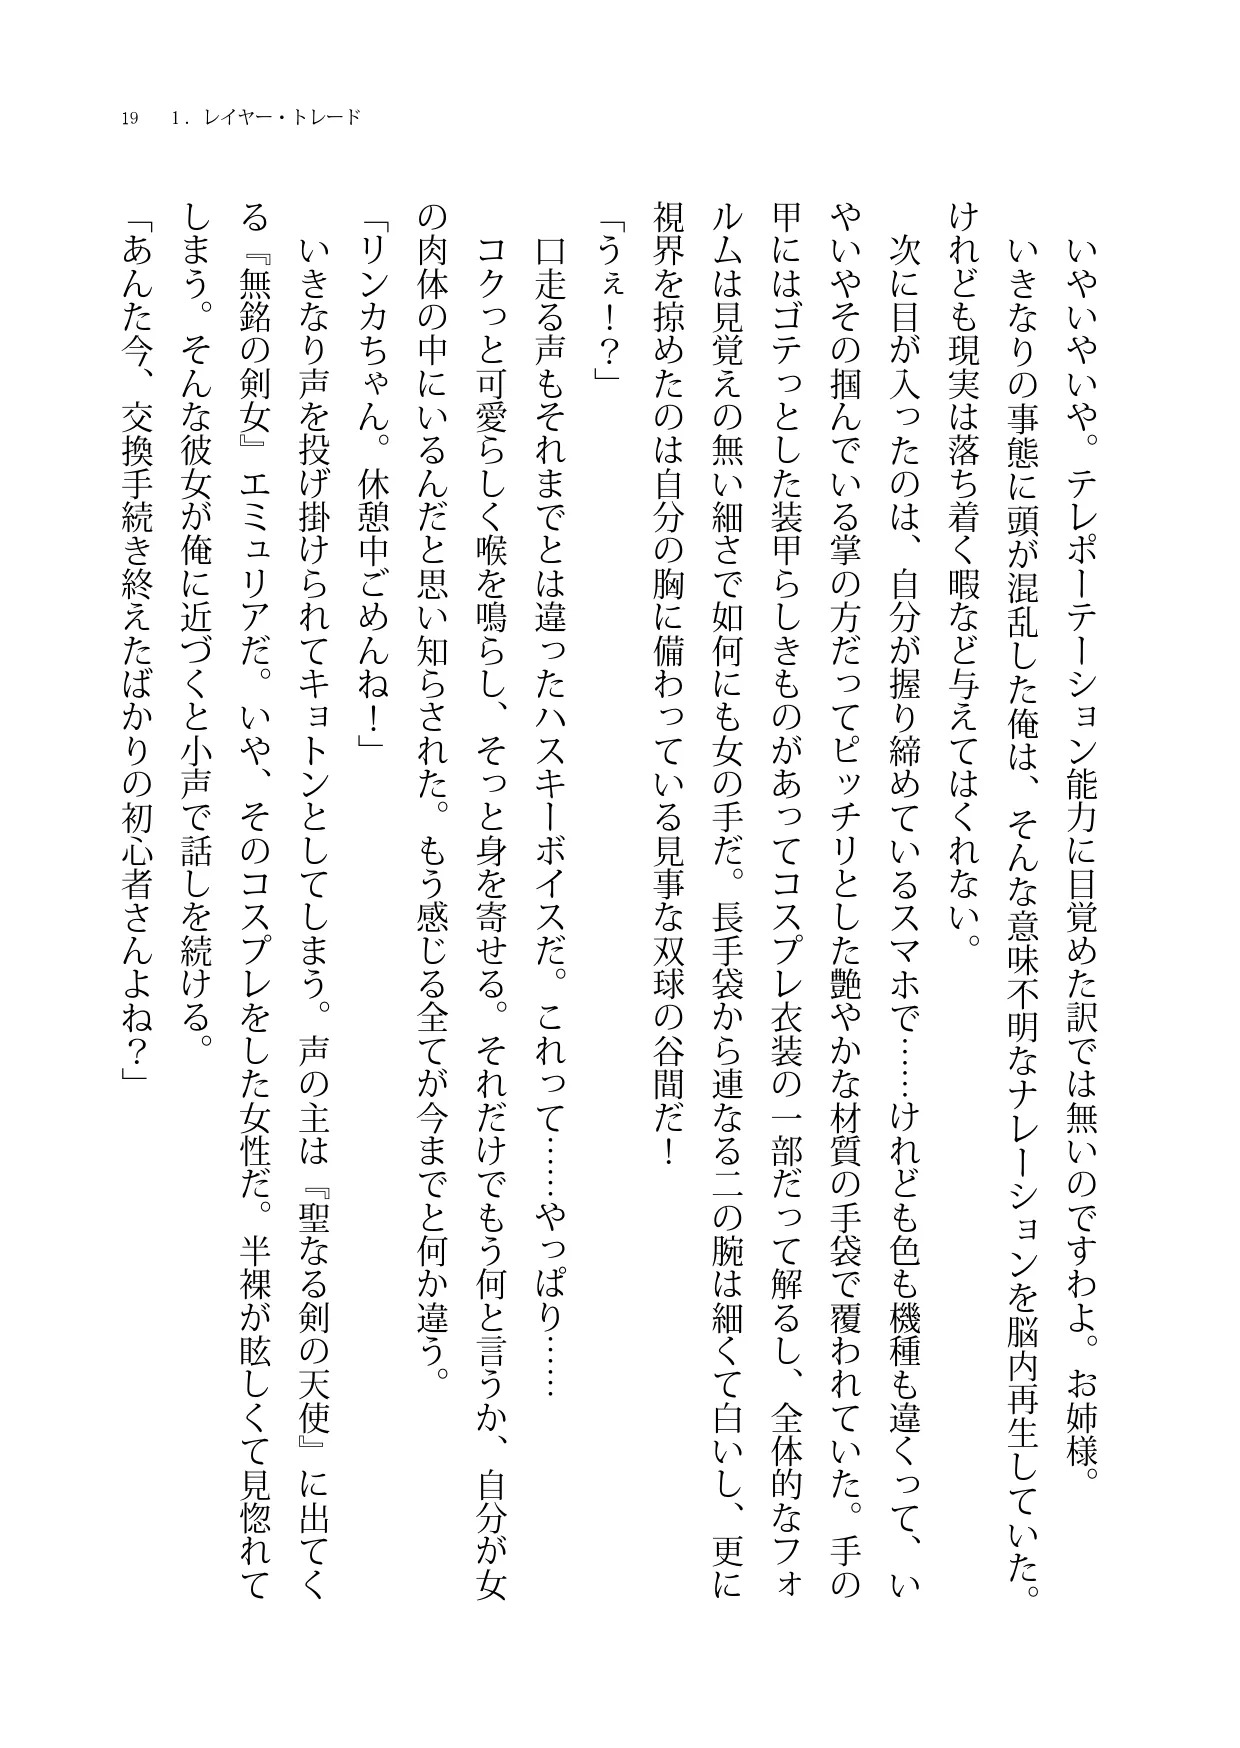 19　1．レイヤー・トレード
　いやいやいや。テレポーテーション能力に目覚めた訳では無いのですわよ。お姉様。
　いきなりの事態に頭が混乱した俺は、そんな意味不明なナレーションを脳内再生していた。
けれども現実は落ち着く暇など与えてはくれない。
　次に目が入ったのは、自分が握り締めているスマホで……けれども色も機種も違くって、い
やいやその掴んでいる掌の方だってピッチリとした艶やかな材質の手袋で覆われていた。手の
甲にはゴテっとした装甲らしきものがあってコスプレ衣装の一部だって解るし、全体的なフォ
ルムは見覚えの無い細さで如何にも女の手だ。長手袋から連なる二の腕は細くて白いし、更に
視界を掠めたのは自分の胸に備わっている見事な双球の谷間だ！
「うぇ！？」
　口走る声もそれまでとは違ったハスキーボイスだ。これって……やっぱり……
　コクっと可愛らしく喉を鳴らし、そっと身を寄せる。それだけでもう何と言うか、自分が女
の肉体の中にいるんだと思い知らされた。もう感じる全てが今までと何か違う。
「リンカちゃん。休憩中ごめんね！」
　いきなり声を投げ掛けられてキョトンとしてしまう。声の主は『聖なる剣の天使』に出てく
る『無銘の剣女』エミュリアだ。いや、そのコスプレをした女性だ。半裸が眩しくて見惚れて
しまう。そんな彼女が俺に近づくと小声で話しを続ける。
「あんた今、交換手続き終えたばかりの初心者さんよね？」